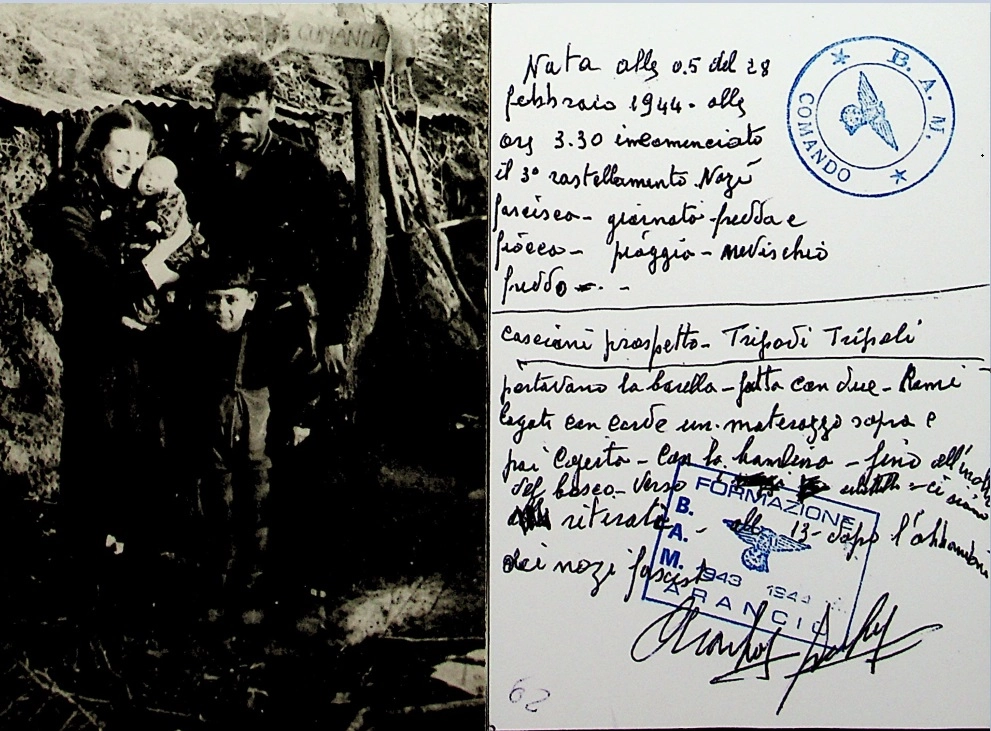 COMANDO
Nata alle 0.5 del 28
febbraio 1944 - alle
ore 3.30 incominciato
il 3° rastellamento Nazi
fascisca - giornata fredda e
fiocca - pioggia - nevischio
freddo - . -
Casciani prospetto - Tripodi Tripoli
portavano la barella - fatta con due - Rami
legati con corde un materazzo sopra e
poi - con la bambina - fino all'
del bosco - verso - ci siamo
ritirati - alle 13 - dopo l'
dei nazi fascisti
B. A. M.
COMANDO
FORMAZIONE
B.
A.
M. 1943 1944
ARANCIO
62